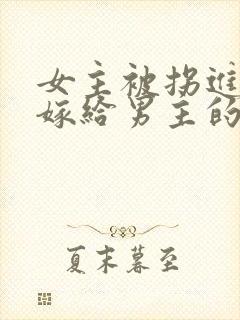 女主被拐进
嫁给男主的
夏末暮至